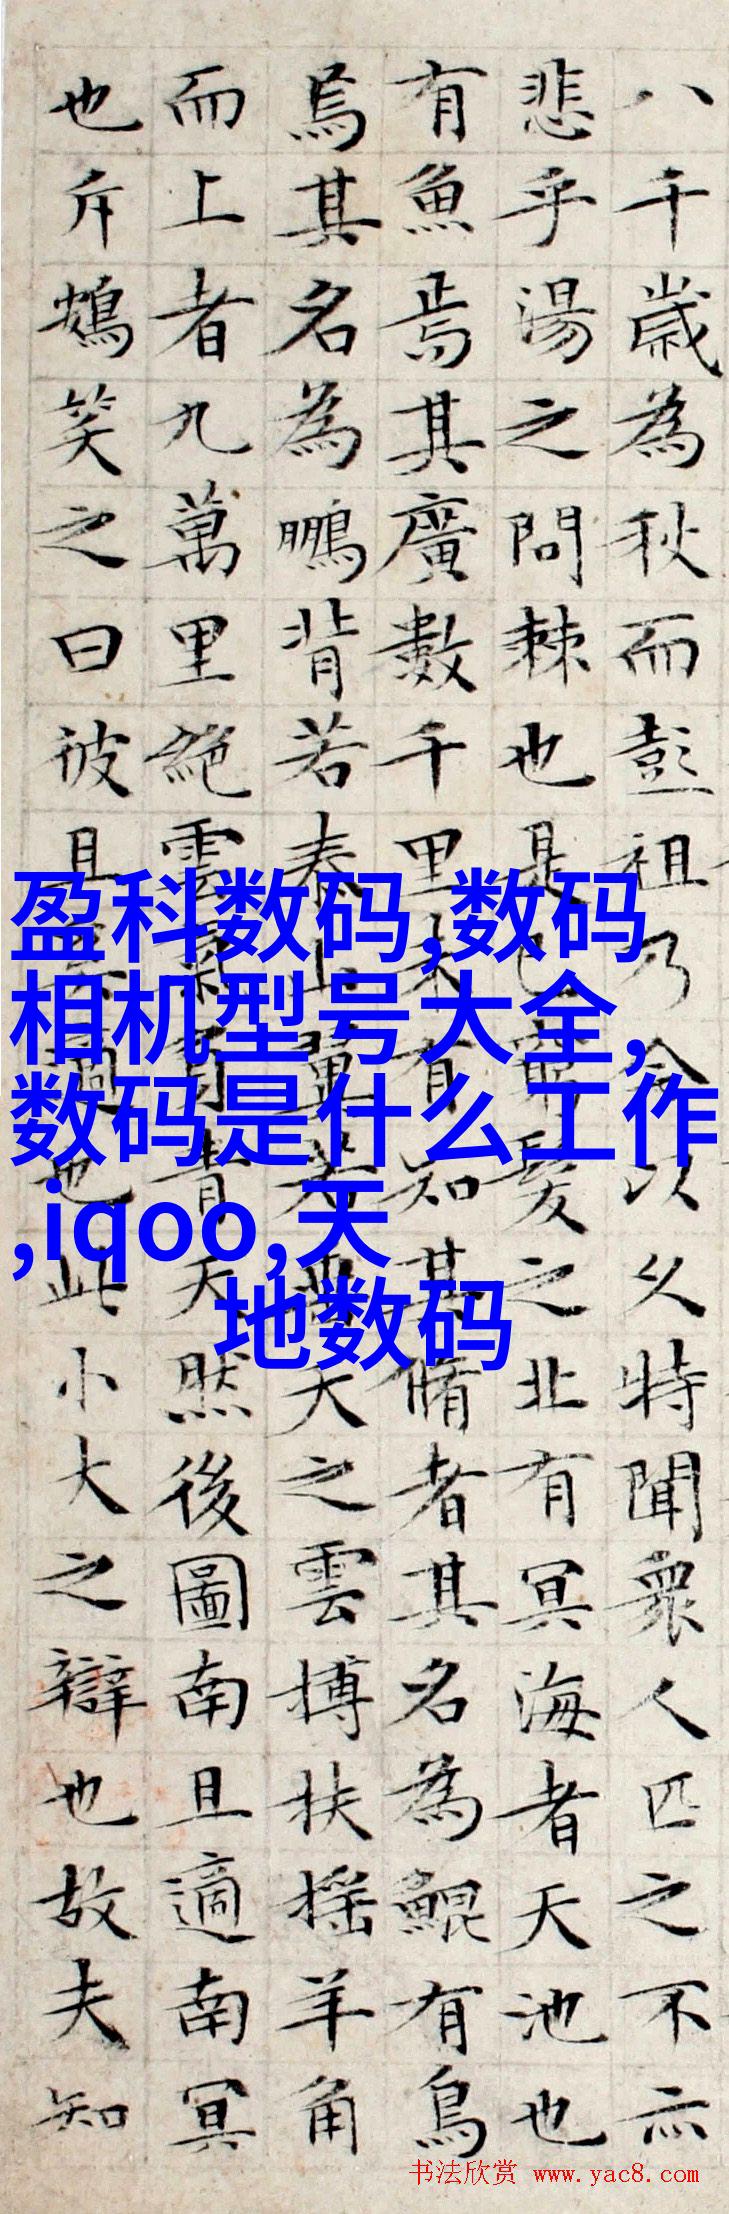 八千歲為秋而彭祖乃今以久特聞衆人匹之不亦
悲乎湯之問棘也是已窮髮之北有冥海者天池也
有魚焉其廣數千里未有知其脩者其名為鯤有鳥
焉其名為鵬背若泰山翼若垂天之雲搏扶摇羊角
而上者九萬里絕雲氣負青天然後圖南且適南冥
也斥鴳笑之曰彼且奚適也此小大之辯也故夫知
盈科数码,数码
相机型号大全,
数码是什么工作
,iqoo,天
地数码
书法欣赏 www.yac8.com